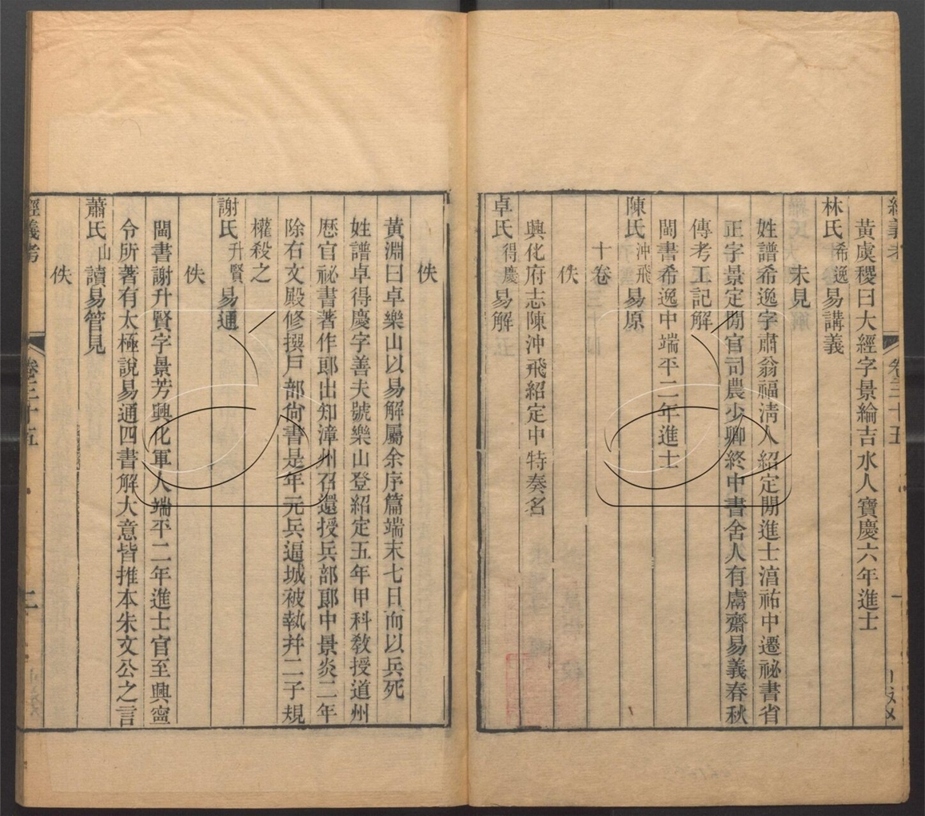 經義考
卷三十五
一
黃虞稷曰大經字景綸吉水人寶慶六年進士
林氏希逸易講義
未見
姓譜希逸字肅翁福淸人紹定閒進士淳祐中遷祕書省
正字景定閒官司農少卿終中書舍人有鬳齋易義春秋
傳考工記解
閩書希逸中端平二年進士
陳氏沖飛易原
十卷
佚
興化府志陳沖飛紹定中特奏名
卓氏得慶易解
佚
黃淵曰卓樂山以易解屬余序篇端末七日而以兵死
姓譜卓得慶字善夫號樂山登紹定五年甲科敎授道州
歷官祕書著作郞出知漳州召還授兵部郞中景炎二年
除右文殿修撰戶部尙書是年元兵逼城被執幷二子規
權殺之
謝氏升賢易通
佚
閩書謝升賢字景芳興化軍人端平二年進士官至興寧
令所著有太極說易通四書解大意皆推本朱文公之言
蕭氏山讀易管見
佚
經義考
卷三十五
二